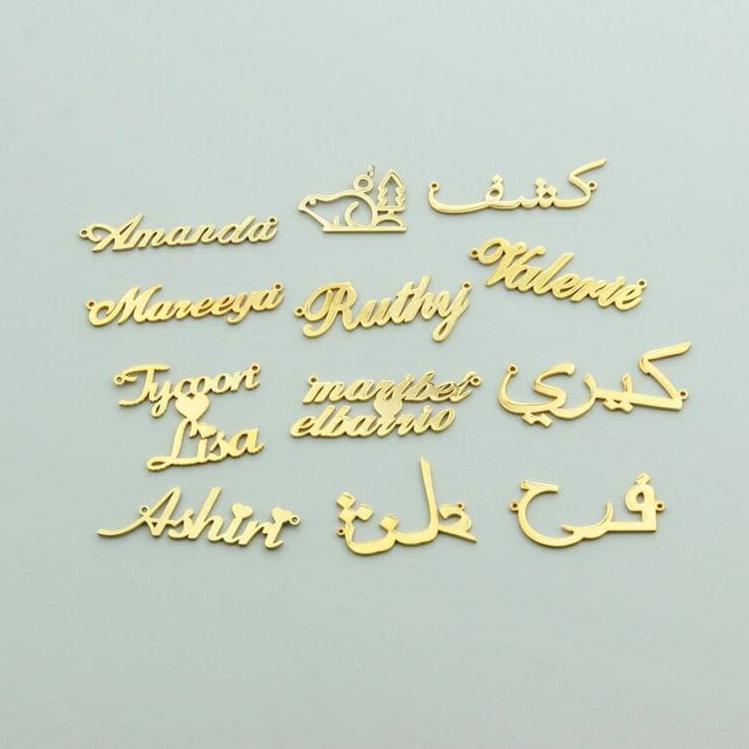 Amanda
كشف
Mareeya
Ruthy
Valerie
Tycoon
Lisa
maribel
elbarrio
كيري
Ashiri
فرح